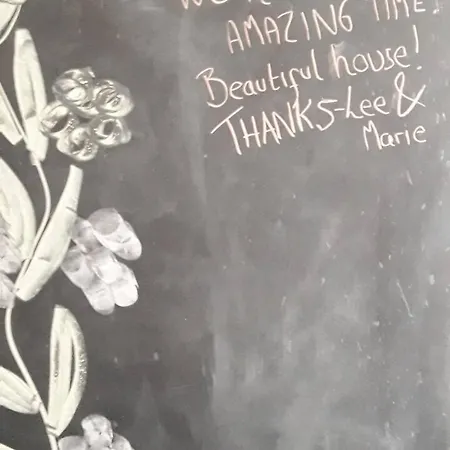 AMAZING TIME!
Beautiful house!
THANKS-Lee &
Marie